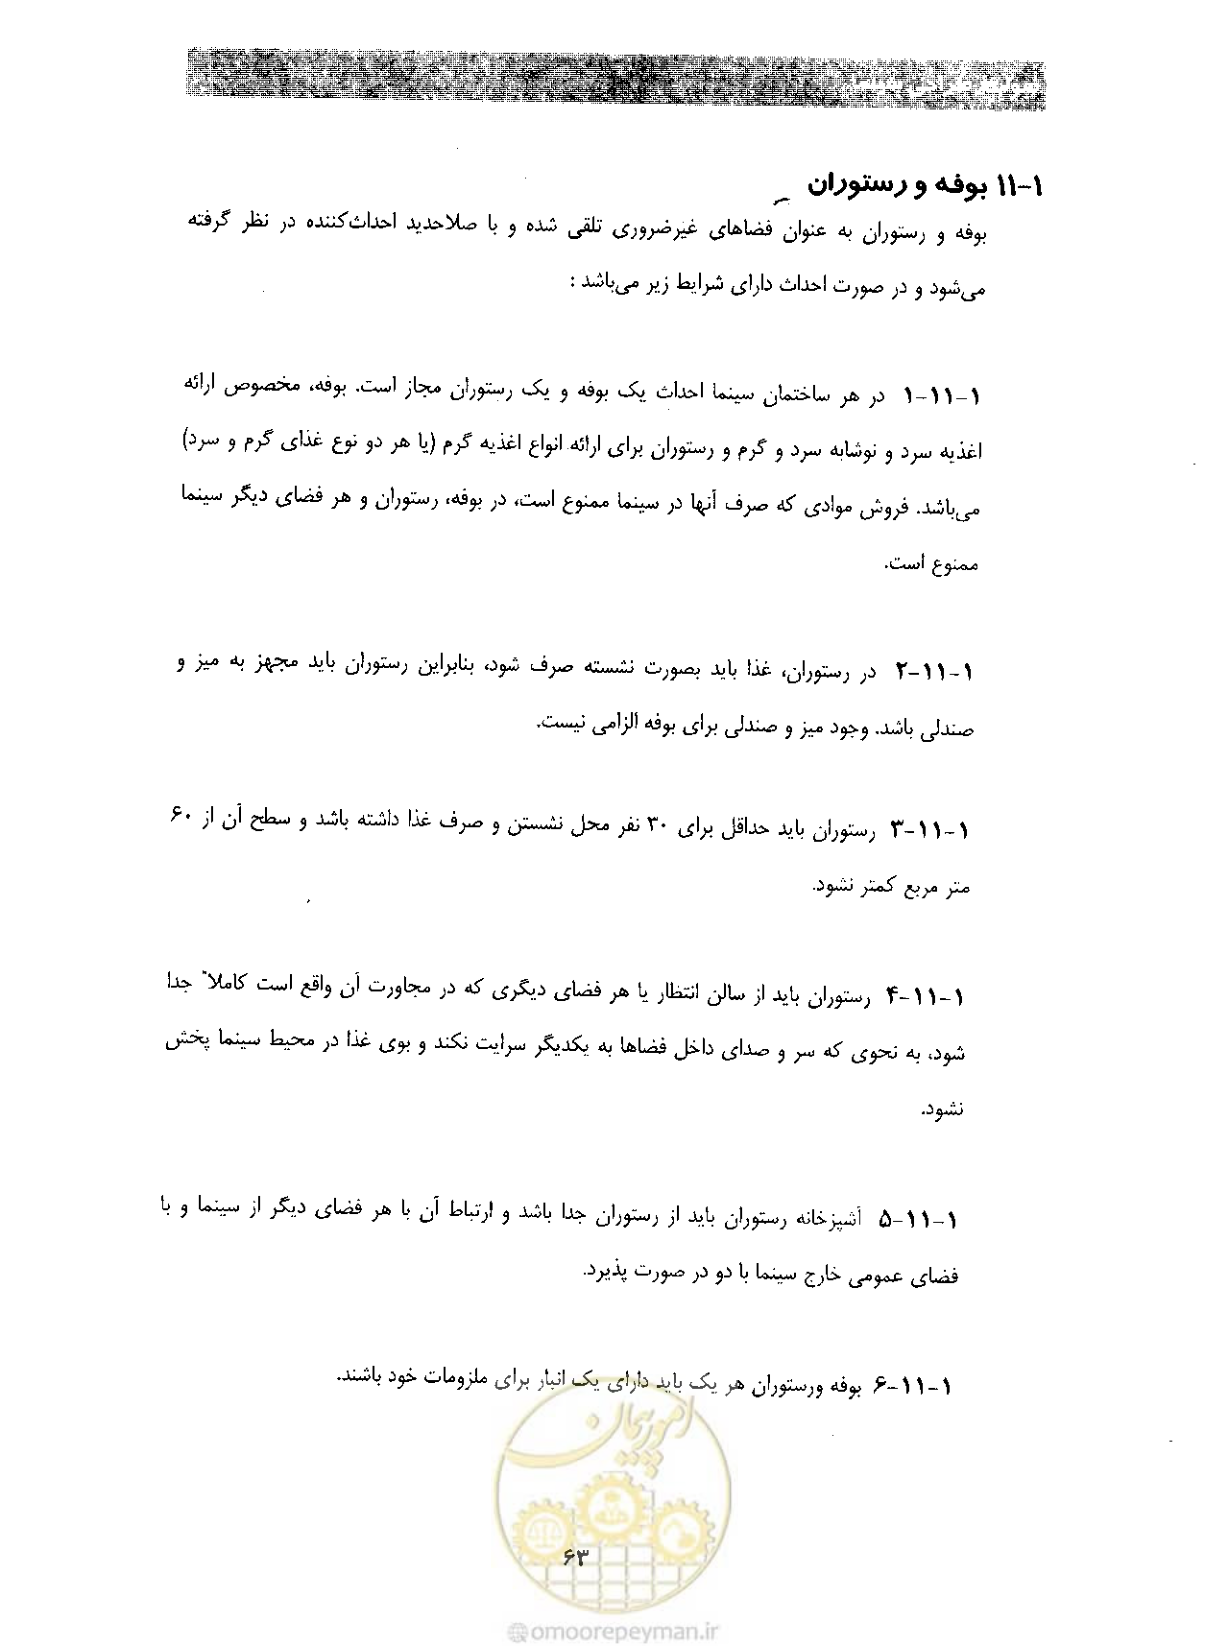 ۱-۱۱ بوفه و رستوران
بوفه و رستوران به عنوان فضاهای غیرضروری تلقی شده و با صلاحدید احداث‌کننده در نظر گرفته
می‌شود و در صورت احداث دارای شرایط زیر می‌باشد :
۱-۱۱-۱ در هر ساختمان سینما احداث یک بوفه و یک رستوران مجاز است. بوفه، مخصوص ارائه
اغذیه سرد و نوشابه سرد و گرم و رستوران برای ارائه انواع اغذیه گرم (یا هر دو نوع غذای گرم و سرد)
می‌باشد. فروش موادی که صرف آنها در سینما ممنوع است، در بوفه، رستوران و هر فضای دیگر سینما
ممنوع است.
۱-۱۱-۲ در رستوران، غذا باید بصورت نشسته صرف شود، بنابراین رستوران باید مجهز به میز و
صندلی باشد. وجود میز و صندلی برای بوفه الزامی نیست.
۱-۱۱-۳ رستوران باید حداقل برای ۳۰ نفر محل نشستن و صرف غذا داشته باشد و سطح آن از ۶۰
متر مربع کمتر نشود.
۱-۱۱-۴ رستوران باید از سالن انتظار یا هر فضای دیگری که در مجاورت آن واقع است کاملاً جدا
شود، به نحوی که سر و صدای داخل فضاها به یکدیگر سرایت نکند و بوی غذا در محیط سینما پخش
نشود.
۱-۱۱-۵ آشپزخانه رستوران باید از رستوران جدا باشد و ارتباط آن با هر فضای دیگر از سینما و با
فضای عمومی خارج سینما با دو در صورت پذیرد.
۱-۱۱-۶ بوفه ورستوران هر یک باید دارای یک انبار برای ملزومات خود باشند.
امور پیمان
۶۳
@omoorepeyman.ir